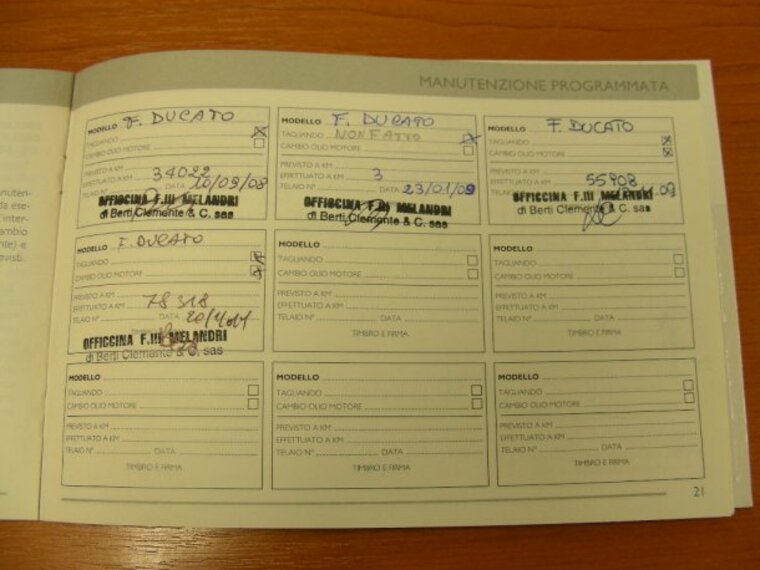 MANUTENZIONE PROGRAMMATA
MODELLO F. DUCATO
TAGLIANDO
CAMBIO OLIO MOTORE
PREVISTO A KM
EFFETTUATO A KM 34022
TELAIO N° DATA 10/09/08
OFFICCINA F.lli MELANDRI
di Berti Clemente & C. sas
MODELLO F. DUCATO
TAGLIANDO NON FATTO
CAMBIO OLIO MOTORE
PREVISTO A KM
EFFETTUATO A KM 3
TELAIO N° DATA 23/01/09
OFFICCINA F.lli MELANDRI
di Berti Clemente & C. sas
MODELLO F. DUCATO
TAGLIANDO
CAMBIO OLIO MOTORE
PREVISTO A KM
EFFETTUATO A KM 55908
TELAIO N° 09
OFFICCINA F.lli MELANDRI
di Berti Clemente & C. sas
MODELLO F. DUCATO
TAGLIANDO
CAMBIO OLIO MOTORE
PREVISTO A KM
EFFETTUATO A KM 78318
TELAIO N° DATA
OFFICCINA F.lli MELANDRI
di Berti Clemente & C. sas
MODELLO
TAGLIANDO
CAMBIO OLIO MOTORE
PREVISTO A KM
EFFETTUATO A KM
TELAIO N° DATA
TIMBRO E FIRMA
MODELLO
TAGLIANDO
CAMBIO OLIO MOTORE
PREVISTO A KM
EFFETTUATO A KM
TELAIO N° DATA
TIMBRO E FIRMA
MODELLO
TAGLIANDO
CAMBIO OLIO MOTORE
PREVISTO A KM
EFFETTUATO A KM
TELAIO N° DATA
TIMBRO E FIRMA
MODELLO
TAGLIANDO
CAMBIO OLIO MOTORE
PREVISTO A KM
EFFETTUATO A KM
TELAIO N° DATA
TIMBRO E FIRMA
MODELLO
TAGLIANDO
CAMBIO OLIO MOTORE
PREVISTO A KM
EFFETTUATO A KM
TELAIO N° DATA
TIMBRO E FIRMA
21